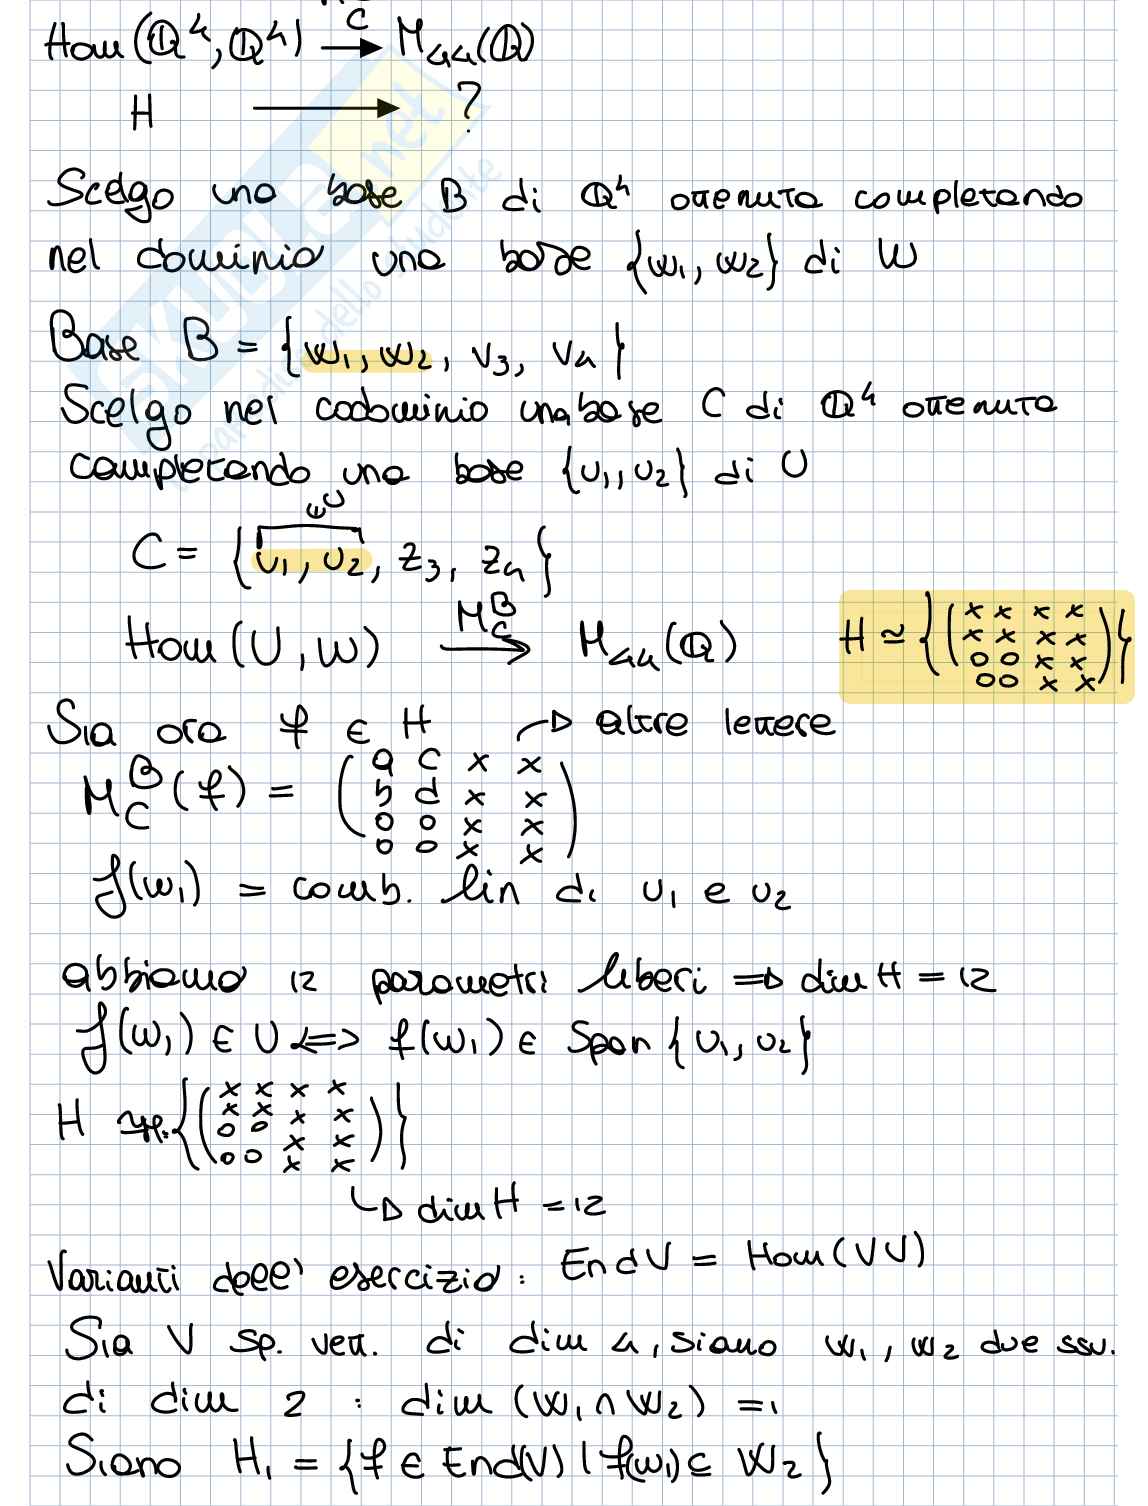 Hom(ℚ⁴, ℚ⁴) →^C M₄₄(ℚ)
H → ?
Scelgo una base B di ℚ⁴ ottenuta completando
nel dominio una base {w₁, w₂} di W
Base B = {w₁, w₂, v₃, v₄}
Scelgo nel codominio una base C di ℚ⁴ ottenuta
completando una base {u₁, u₂} di U
∈U
C = {u₁, u₂, z₃, z₄}
Hom(U, W) →^{M_C^B} M₄₄(ℚ) H ≃ {(x x x x
x x x x
0 0 x x
0 0 x x)}
Sia ora f ∈ H → altre lettere
M_C^B(f) = (a c x x
b d x x
0 0 x x
0 0 x x)
f(w₁) = comb. lin di u₁ e u₂
abbiamo 12 parametri liberi ⇒ dim H = 12
f(w₁) ∈ U ⟺ f(w₁) ∈ Span{u₁, u₂}
H {(x x x x
x x x x
0 0 x x
0 0 x x)}
↳ dim H = 12
Varianti dell' esercizio: End V = Hom(V V)
Sia V sp. vett. di dim 4, siano W₁, W₂ due ssv.
di dim 2 : dim (W₁ ∩ W₂) = 1
Siano H₁ = {f ∈ End(V) | f(W₁) ⊆ W₂}
skuola.net
dello studente